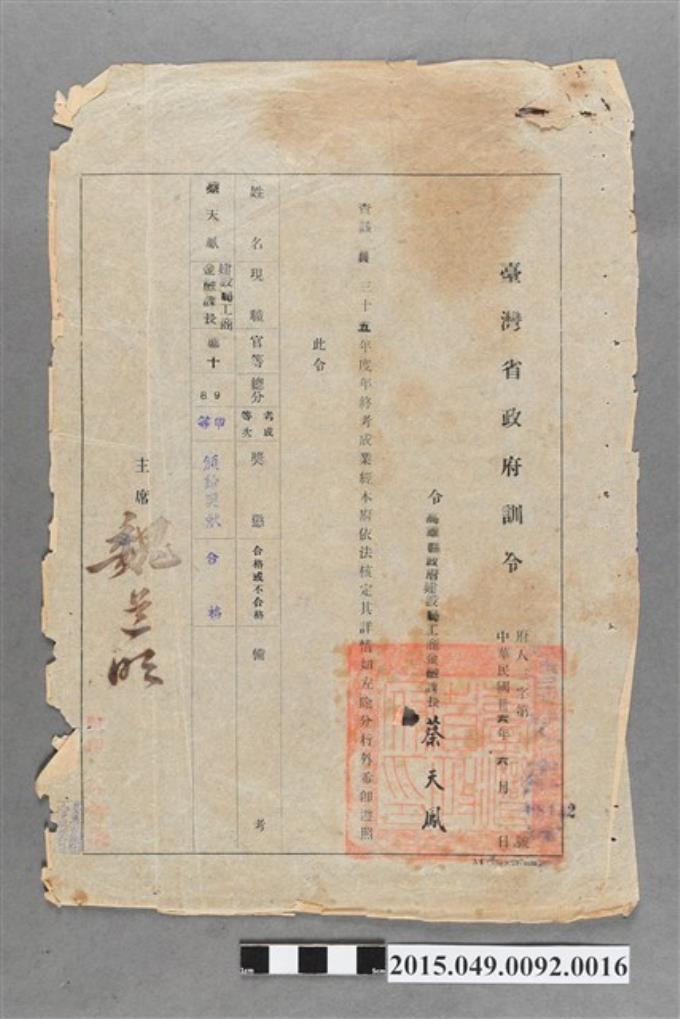 臺灣省政府訓令
府人二字第 號
中華民國卅六年六月 日
令高雄縣政府建設局工商金融課長 蔡天鳳
查該員三十五年度年終考成業經本府依法核定其詳情如左除分行外希即遵照
此令
姓名 現職 官等 總分 考成等次 獎懲 合格或不合格 備考
蔡天鳳 建設局工商金融課長 十 89 甲等 頒給獎狀 合格
主席 魏道明
2015.049.0092.0016
1cm
5cm